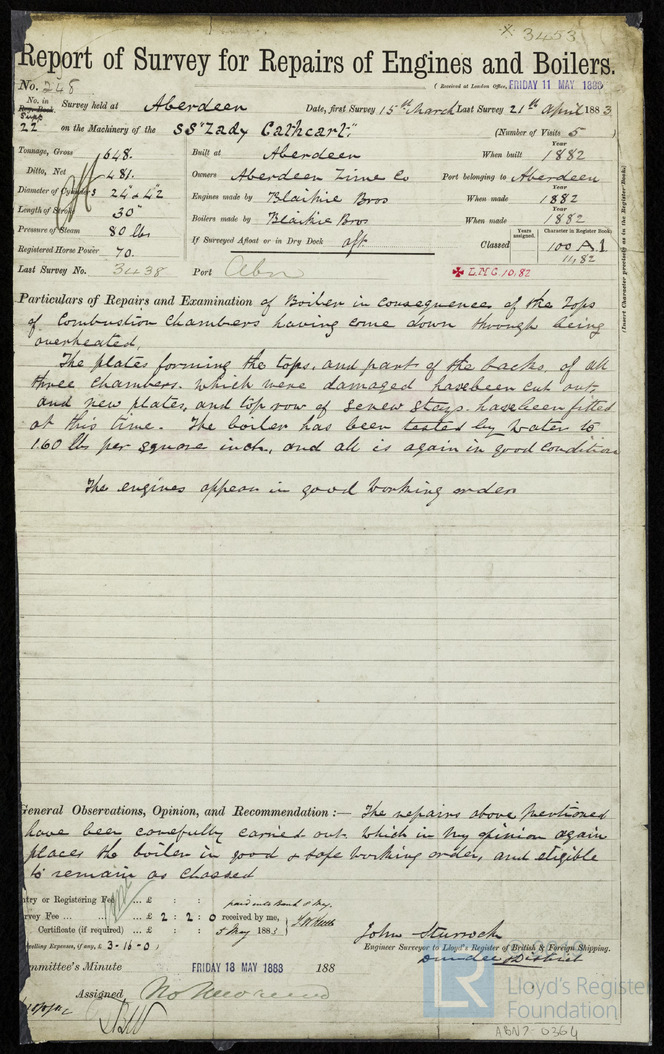 3453
Report of Survey for Repairs of Engines and Boilers.
No. 248
(Received at London Office, FRIDAY 11 MAY 1883
No. in Reg. Book. Supp 22
Survey held at Aberdeen Date, first Survey 15th March Last Survey 21st April 1883
on the Machinery of the SS "Lady Cathcart," (Number of Visits 5
Tonnage, Gross 648. Built at Aberdeen When built 1882
Ditto, Net 481. Owners Aberdeen Lime Co Port belonging to Aberdeen
Diameter of Cylinders 24" & 42 Engines made by Blaikie Bros When made Year 1882
Length of Stroke 30" Boilers made by Blaikie Bros When made Year 1882
Pressure of Steam 80 lbs If Surveyed Afloat or in Dry Dock aft. Classed Years assigned. Character in Register Book 100 A.1
Registered Horse Power 70. 11,82
Last Survey No. 3438 Port Abn L.M.C. 10.82
(Insert Character precisely as in the Register Book)
Particulars of Repairs and Examination of Boiler in consequence of the Tops
of Combustion Chambers having come down through being
overheated.
The plates forming the tops, and part of the backs, of all
three chambers. which were damaged have been cut out,
and new plates, and top row of screw stays. have been fitted
at this time. The boiler has been tested by water to
160 lbs per square inch, and all is again in good condition
The engines appear in good working order
General Observations, Opinion, and Recommendation :— The repairs above mentioned
have been carefully carried out. which in my opinion again
places the boiler in good & safe working order, and eligible
to remain as Classed
ntry or Registering Fee ... £ : :
rvey Fee ... ... ... £ 2 : 2 : 0 received by me,
Certificate (if required) ... : : 5 May 1883
velling Expenses, if any, £ 3-16-0
John Sturrock
Engineer Surveyor to Lloyd's Register of British & Foreign Shipping.
Dundee District
ommittee's Minute FRIDAY 18 MAY 1883 188
Assigned
LR Lloyd's Register
Foundation
ABN7-0364